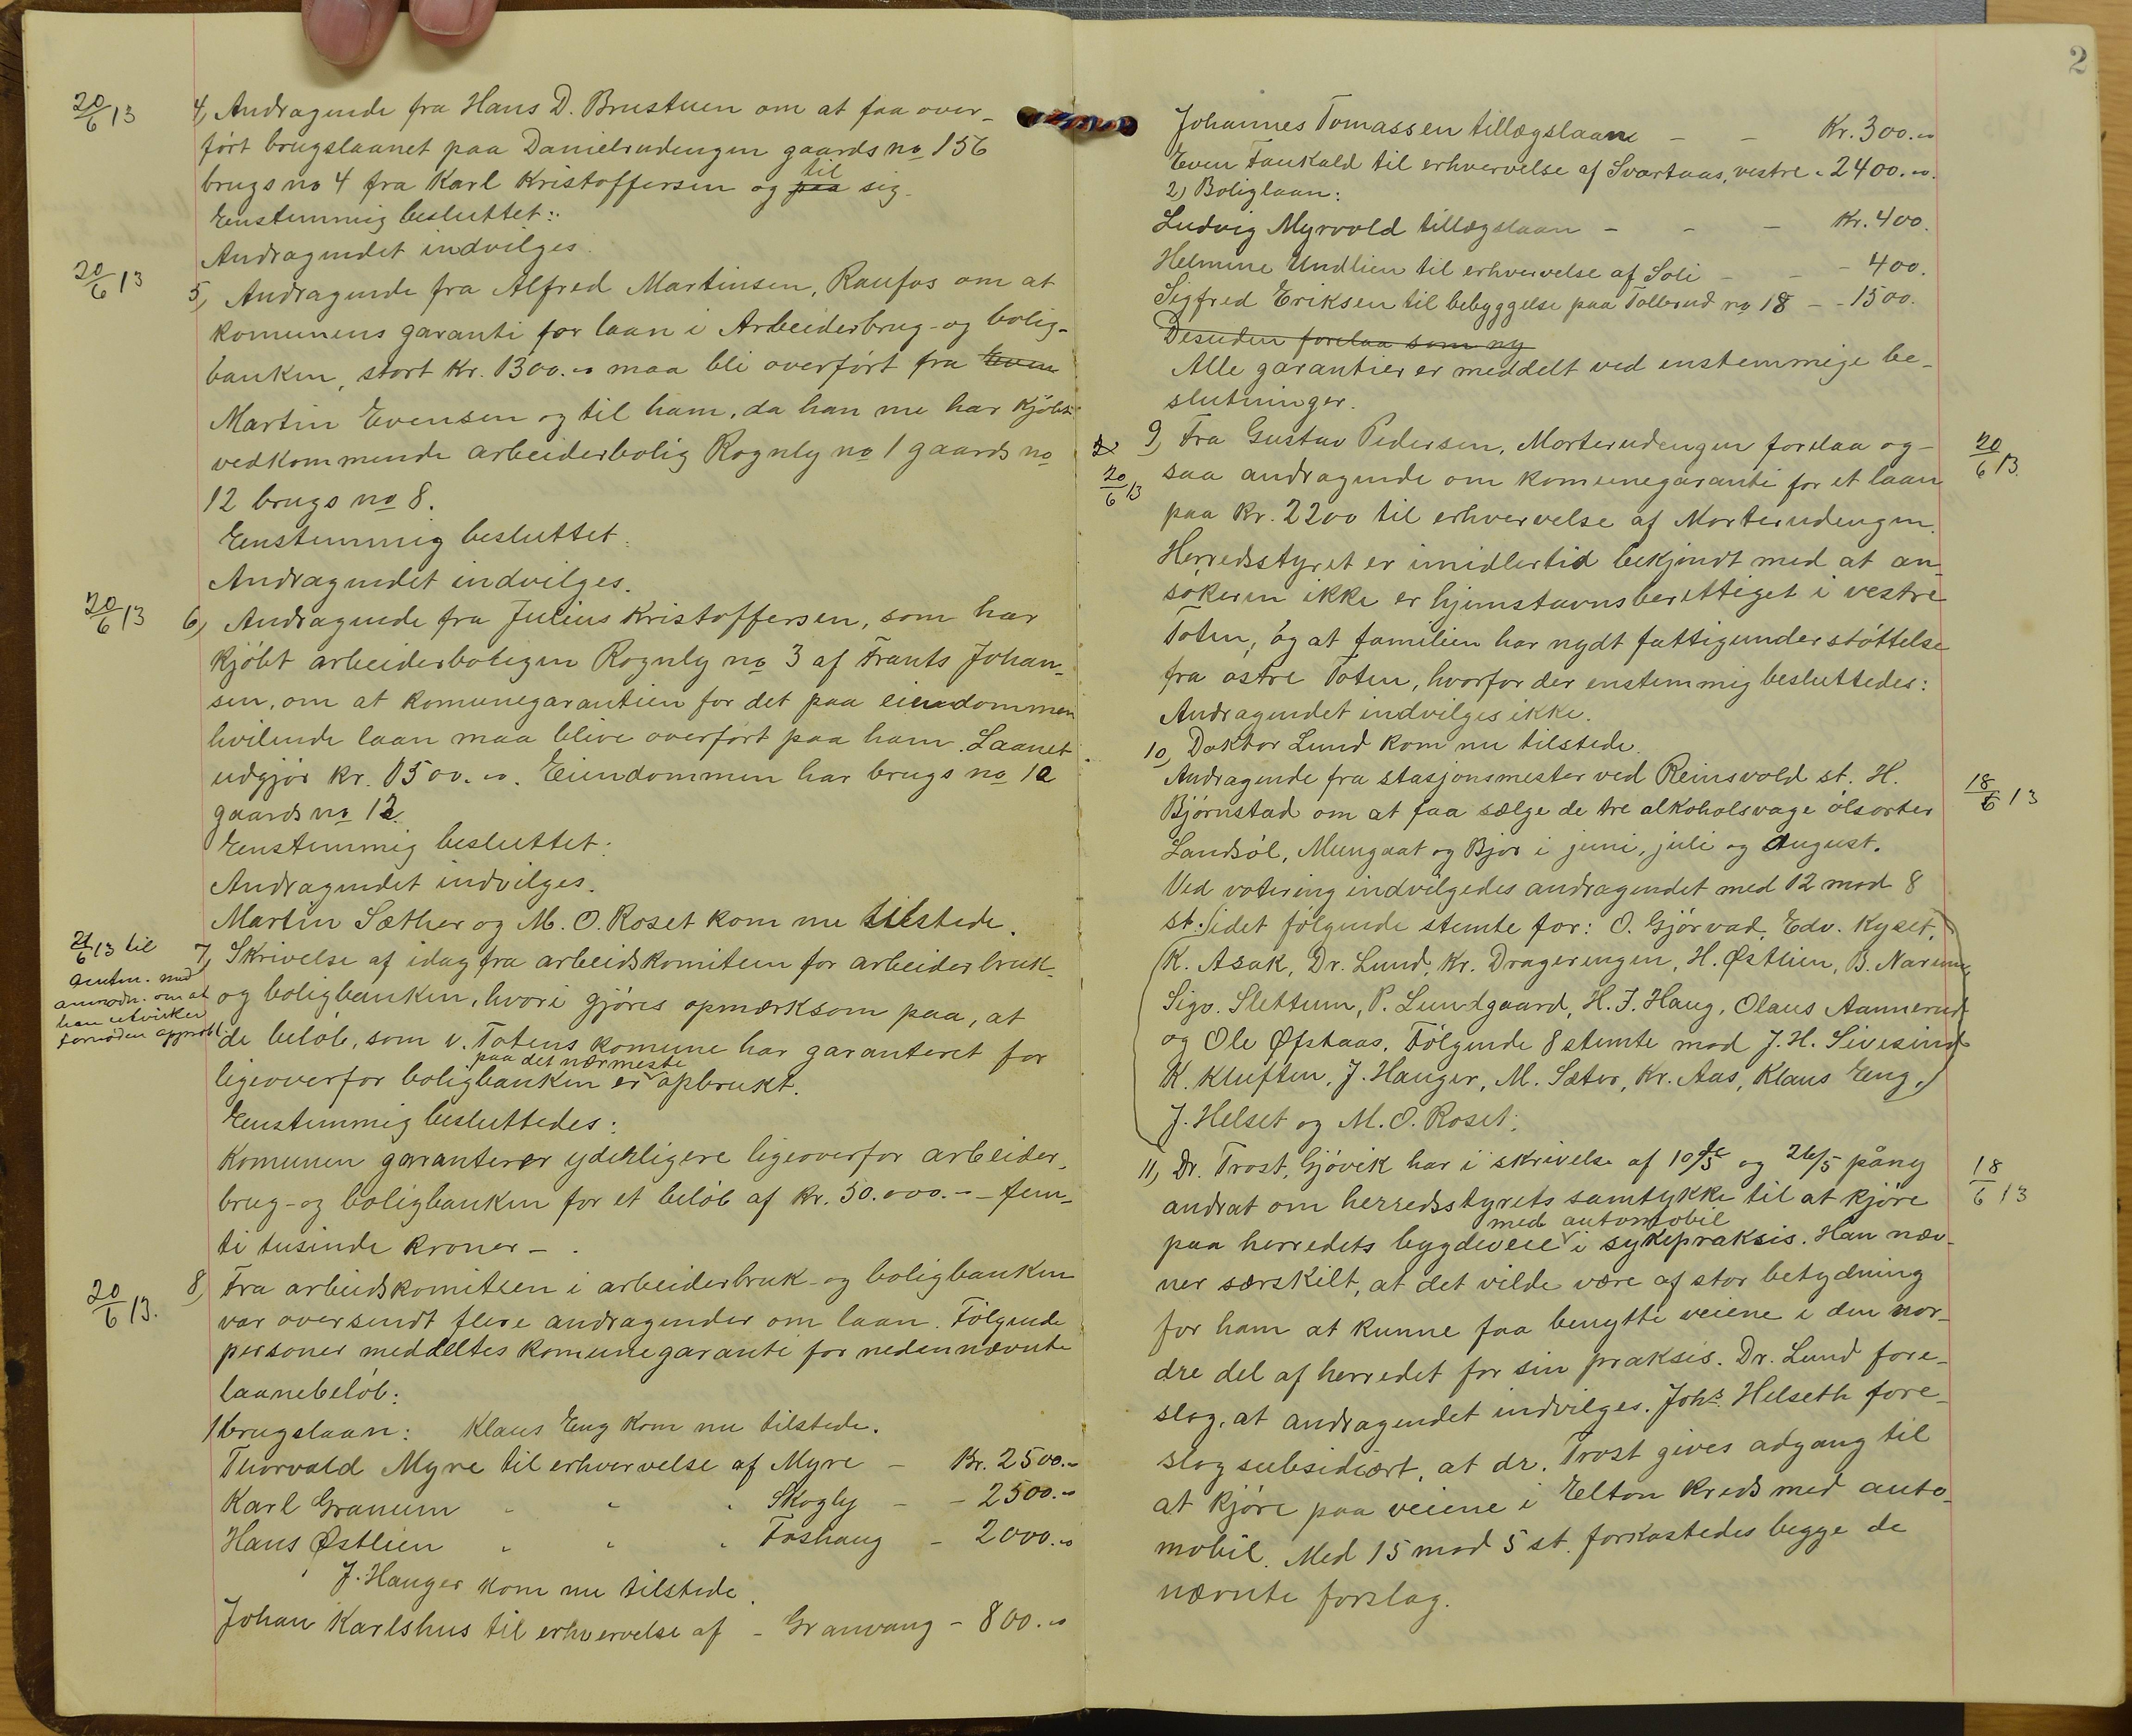 20/6 13
4, Andragende fra Hans D. Brustuen om at faa over-
ført brugslaanet paa Danielsudengen gaards no 156
brugs no 4 fra Karl Kristoffersen og paa til sig.
Eenstemmig besluttet:
Andragendet indvilges.
20/6 13
5, Andragende fra Alfred Martinsen, Raufos om at
komunens garanti for laan i Arbeiderbrug- og bolig-
banken, stort Kr. 1300.00 maa bli overført fra Even
Martin Evensen og til ham, da han nu har kjøbt
vedkommende arbeiderbolig Rognly no 1 gaards no
12 brugs no 8.
Eenstemmig besluttet:
Andragendet indvilges.
20/6 13
6, Andragende fra Julius Kristoffersen, som har
kjøbt arbeiderboligen Rognly no 3 af Frants Johan-
sen, om at komunegarantien for det paa eiendommen
hvilende laan maa blive overført paa ham. Laanet
udgjør kr. 1500.00. Eiendommen har brugs no 10
gaards no 12.
Eenstemmig besluttet:
Andragendet indvilges.
Martin Sæther og M. O. Roset kom nu tilstede.
21/6 13 til
Amtm. med
anmodn. om at
han utvirker
fornøden approb.
7, Skrivelse af idag fra arbeidskomiteen for arbeiderbruk-
og boligbanken, hvori gjøres opmærksom paa, at
de beløb, som v. Totens komune har garanteret for
ligeoverfor boligbanken er paa det nærmeste opbrukt.
Eenstemmig besluttedes:
Komunen garanterer yderligere ligeoverfor arbeider-
brug- og boligbanken for et beløb af kr. 50.000.-- fem-
ti tusinde kroner -.
20/6 13.
8, Fra arbeidskomiteen i arbeiderbruk- og boligbanken
var oversendt flere andragender om laan. Følgende
personer meddeltes komunegaranti for nedennævnte
laanebeløb:
1 brugslaan: Klaus Eng kom nu tilstede.
Thorvald Myre til erhvervelse af Myre - Kr. 2500.00
Karl Granum " " " Skogly - - 2500.00
Hans Østlien " " " Foshaug - 2000.00
J. Hauger kom nu tilstede.
Johan Karlshus til erhvervelse af - Granvang - 800.00
2
Johannes Tomassen tillægslaan - - Kr. 300.00
Even Faukald til erhvervelse af Svartaas, vestre - 2400.00.
2, Boliglaan:
Ludvig Myrvold tillægslaan - - - Kr. 400.
Helmine Undlien til erhvervelse af Soli - - - 400.
Sigfred Eriksen til bebyggelse paa Tollerud no 18 - - 1500.
Desuden forelaa som ny
Alle garantier er meddelt ved enstemmige be-
slutninger.
20/6 13
9, Fra Gustav Pedersen, Morterudengen forelaa og-
saa andragende om komunegaranti for et laan
paa kr. 2200 til erhvervelse af Morterudengen.
20/6 13.
Herredsstyret er imidlertid bekjendt med at an-
søkeren ikke er hjemstavnsberettiget i vestre
Toten, og at familien har nydt fattigunderstøttelse
fra østre Toten, hvorfor der enstemmig besluttedes:
Andragendet indvilges ikke.
10, Doktor Lund kom nu tilstede.
Andragende fra stasjonsmester ved Reinsvold st. H.
18/6 13
Bjørnstad om at faa sælge de tre alkoholsvage ølsorter
Landsøl, Mungaat og Bjor i juni, juli og august.
Ved votering indvilgedes andragendet med 12 mod 8
st. idet følgende stemte for: O. Gjørvad, Edv. Kyset,
K. Asak, Dr. Lund, Kr. Drageringen, H. Østlien, B. Narum,
Sigv. Slettum, P. Lundgaard, H. J. Haug, Olaus Aannerud
og Ole Øfstaas. Følgende 8 stemte mod J. H. Sivesind
K. Kluften, J. Hauger, M. Sæter, Kr. Aas, Klaus Eng,
J. Helset og M. O. Roset.
11, Dr. Trost, Gjøvik har i skrivelse af 10de/5 og 26/5 påny
18/6 13
andrat om herredsstyrets samtykke til at kjøre
paa herredets bygdeveie med automobil i sykepraksis. Han næv-
ner særskilt, at det vilde være af stor betydning
for ham at kunne faa benytte veiene i den nor-
dre del af herredet for sin praksis. Dr. Lund fore-
slog, at andragendet indvilges. Johs. Helseth fore-
slog subsidiært, at dr. Trost gives adgang til
at kjøre paa veiene i Elton kreds med auto-
mobil. Med 15 mod 5 st. forkastedes begge de
nævnte forslag.